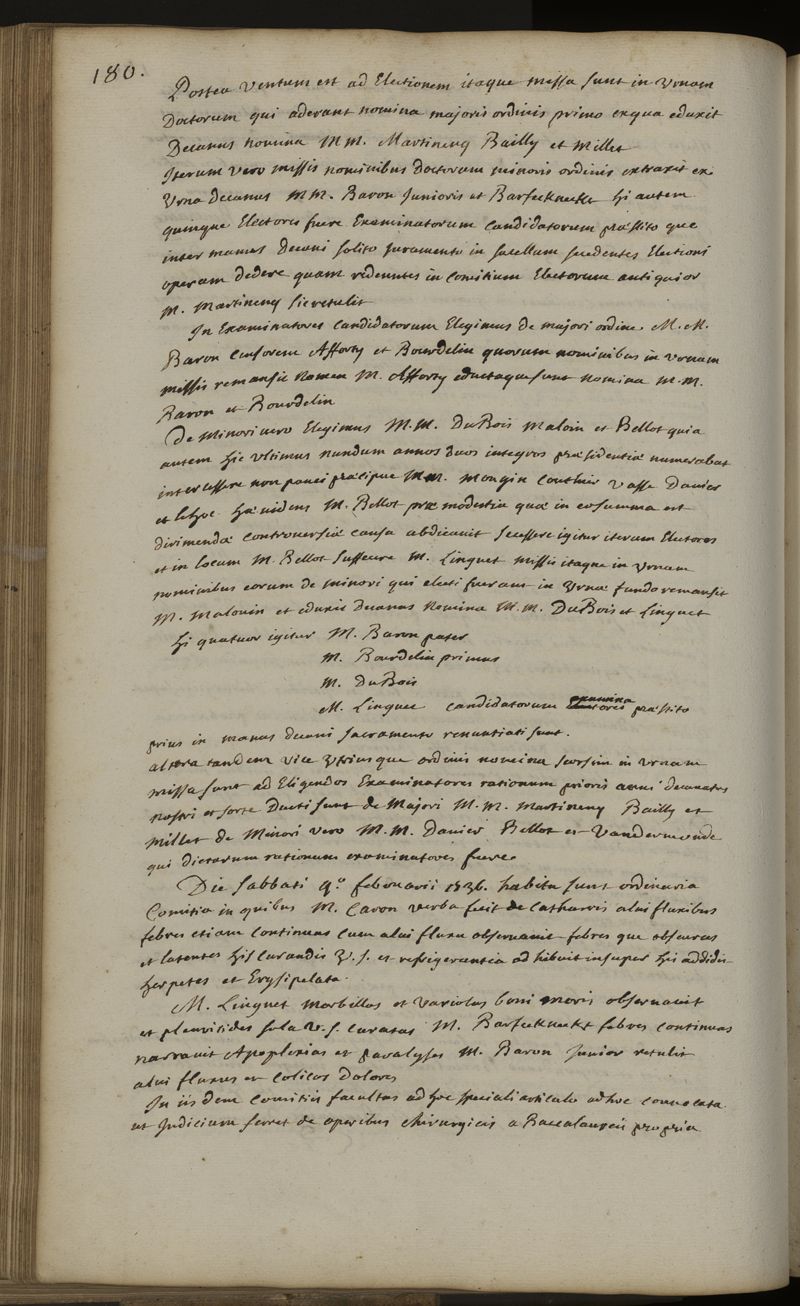 180.
Postea ventum est ad Electionem itaque missa sunt in Urnam
Doctorum qui aderant nomina majoris ordinis primo ex qua eduxit
Decanus nomina MM. Martinenq Bailly et Millet
Iterum vero missis nominibus doctorum minoris ordinis extraxit ex
Urna decanus MM. Baron Junioris et Barfeknecht hi autem
quinque Electores fuere Examinatorum candidatorum præstito que
inter manus decani solito juramento in sacellum secedentes Electioni
operam dedere quam redeuntes in comitium Electorum antiquior
M. Martinenq sic retulit
In Examinatores candidatorum Elegimus de majori ordine. M.M.
Baron censorem Afforty et Bourdelin quorum nominibus in urnam
missis remansit nomen M. Afforty eductaque sunt nomina M.M.
Baron et Bourdelin
De Minori vero Elegimus M.M. DuBois Maloin et Bellot quia
autem hic ultimus nundum annos duos integros præsidentiæ numerabat
intercessere non pauci præcipue MM. Mongin Couthier Vasse Danier
et Lehoc. hæ videns M. Bellot præ modestia quâ in eo summa est
dirimendæ controversiæ causa abdicavit secessere igitur iterum Electores
et in locum M. Bellot suffecere M. Linguet missis itaque in Urnam
nominibus eorum de minori qui electi fuerant in Urnæ fundo remansit
M. Malouin et eduxit decanus nomina M.M. DuBois et Linguet
hi quatuor igitur M. Baron pater
M. Bourdelin primus
M. DuBois
M. Linguet candidatorum examina
tores præstito
prius in manus decani sacramento renuntiati sunt.
altera tandem vice Utriusque ordinis nomina seorsim in Urnam
missa sunt ad Eligendos Examinatores rationum prioris anni decanatus
nostri et sorte Ducti sunt de Majori M.M. Martinenq Bailly et
Millet de Minori vero M.M. Danier Bellot et Vandermonde
qui dictarum rationum examinatores fuere.
Die Sabbati 4.º februarii 1736. habita sunt ordinaria
Comitia in quibus M. Caron verba fecit de Catharris alvi fluxibus
febres etiam continuas cum alvi fluxu observavit febres que obscuras
et latentes his curandis V. S. et refrigerantia adhibuit insuper his addidit
herpetes et Erysipelata.
M. Linguet Morbillos et Variolas boni moris observavit
et pleuritides sola V. S. curatas M. Barfeknecht febres continuas
narravit Apoplexias et paralyses M. Baron Junior retulit
alvi fluxus et Colicos Dolores
In iisdem Comitiis facultas ad hoc speciali articulo adhoc convocata
ut Judicium ferret de operibus chirurgicis a Baccalaureis propria